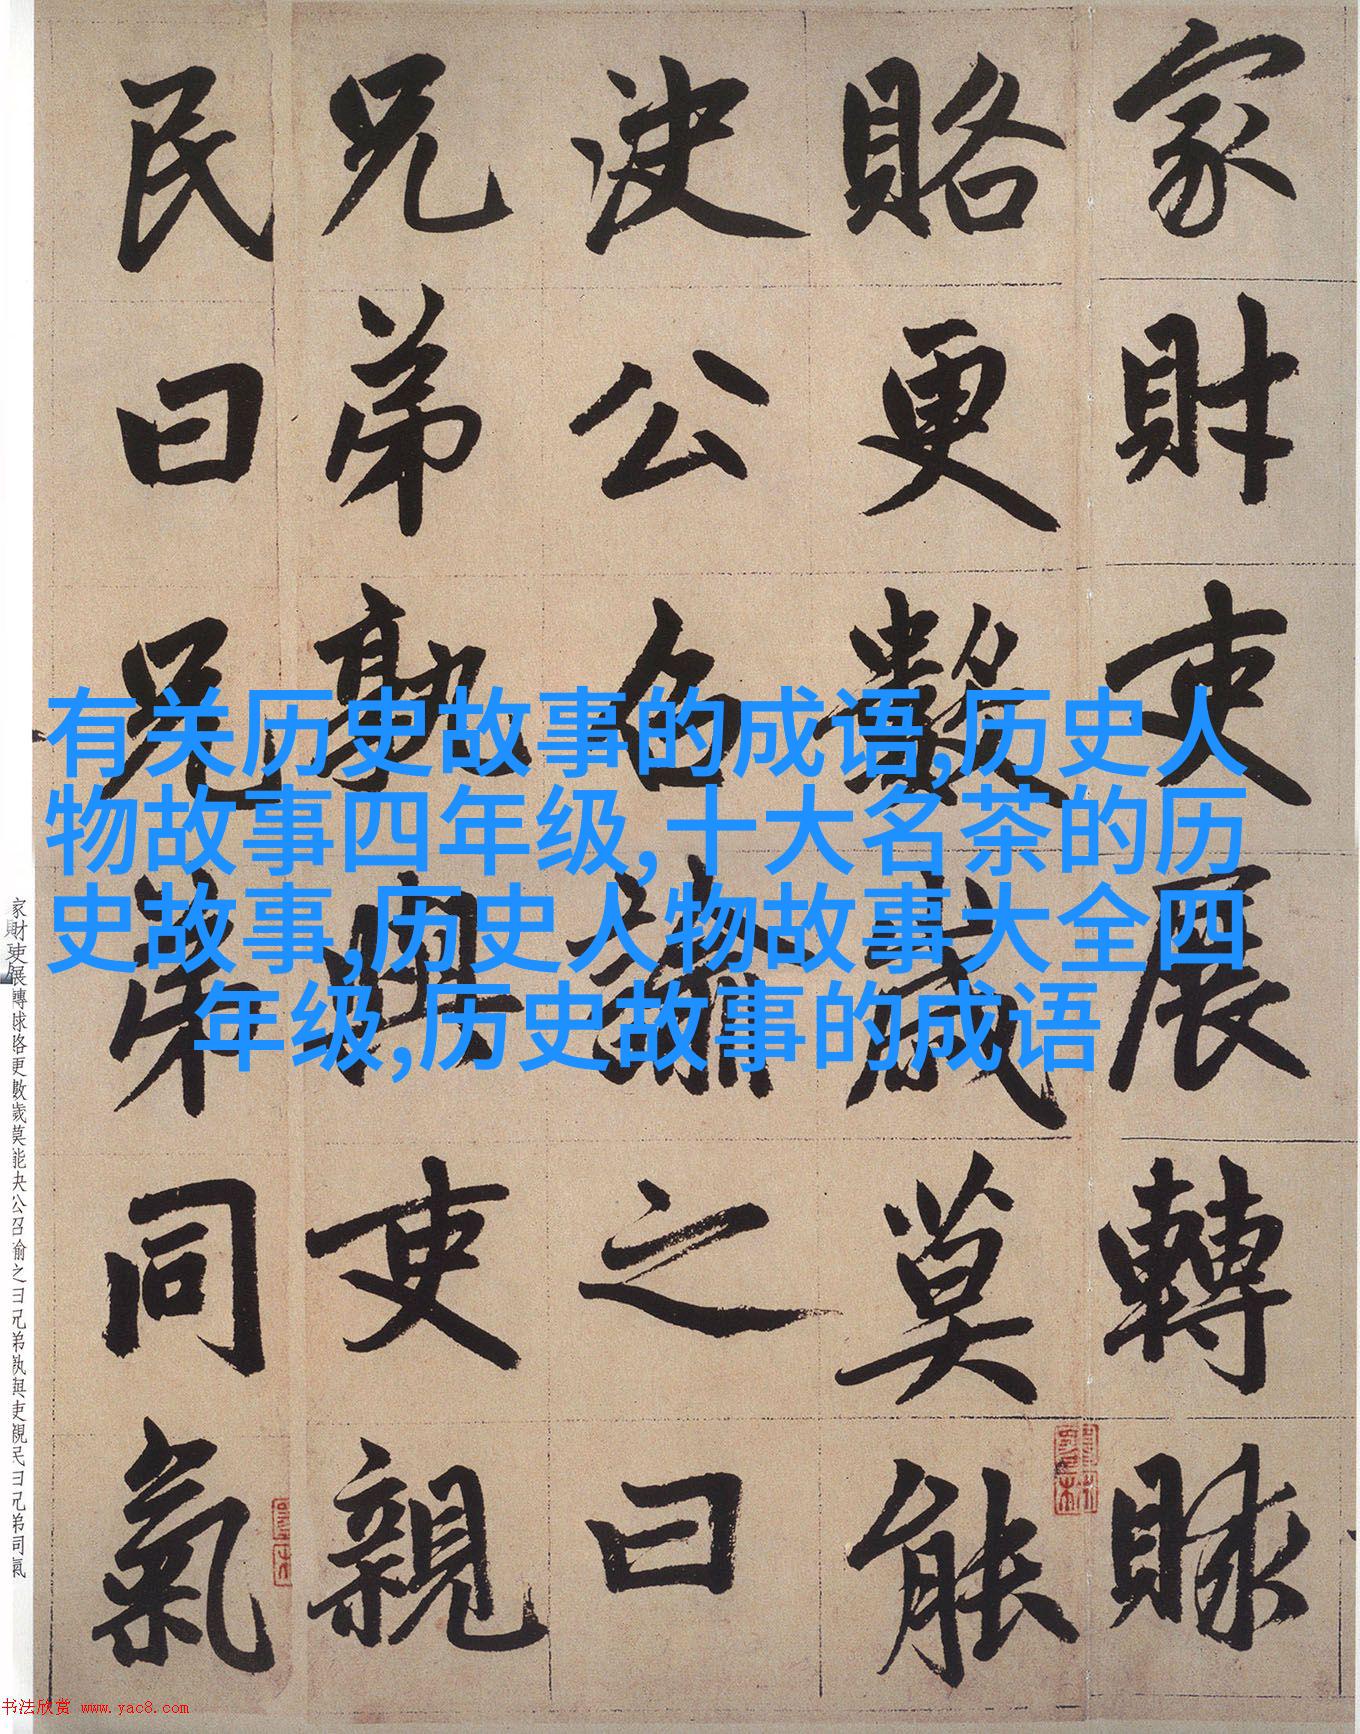 家財吏展轉賕
賂更數歲莫能
決公召諭之曰
兄弟孰與吏親
民曰兄弟同氣
有关历史故事的成语,历史人
物故事四年级,十大名茶的历
史故事,历史人物故事大全四
年级,历史故事的成语
家財吏展轉賕賂更數歲莫能決公召諭之曰兄弟孰與吏親民曰兄弟同氣
书法欣赏 www.yac8.com